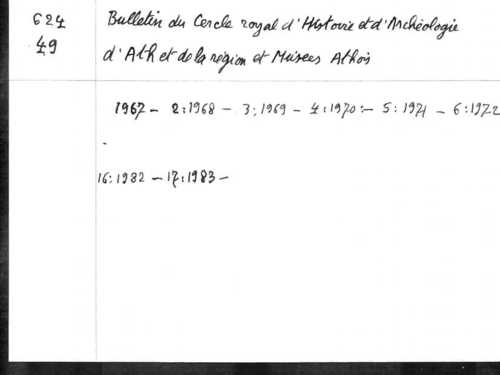 624
49
Bulletin du Cercle royal d'Histoire et d'Archéologie
d'Ath et de la région et Musées Athois
1967 - 2:1968 - 3:1969 - 4:1970:- 5:1971 - 6:1972
16:1982 - 17:1983 -